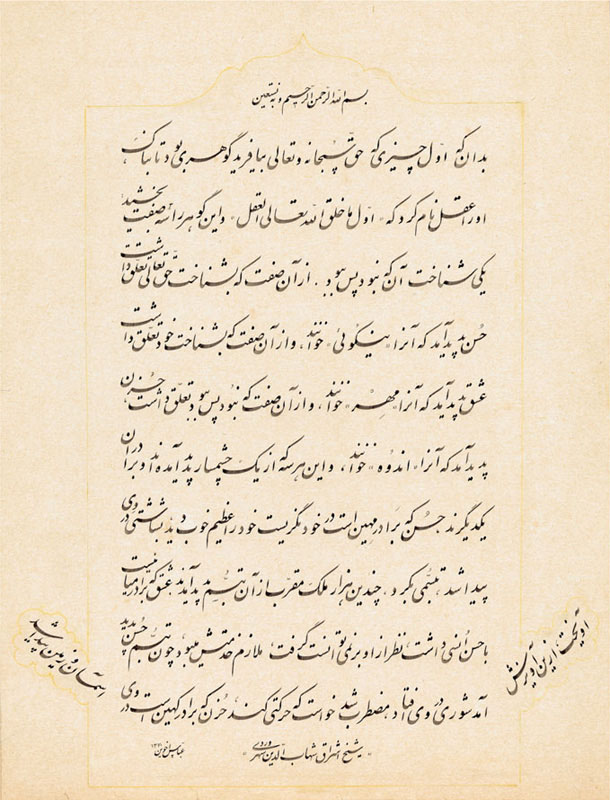 بسم الله الرحمن الرحیم و به نستعین
بدان که اوّل چیزی که حق سبحانه و تعالی بیافرید گوهری بود تابناک
او را عقل نام کرد که «اول ما خلق الله تعالی العقل» و این گوهر را سه صفت بخشید
یکی شناخت آن که نبود پس ببود. از آن صفت که بشناخت حق تعالی تعلّق داشت
حُسن پدید آمد که آنرا «نیکوئی» خوانند، و از آن صفت که بشناخت خود تعلّق داشت
عشق پدید آمد که آنرا «مهر» خوانند، و از آن صفت که نبود پس ببود تعلّق داشت، حُزن
پدید آمد که آنرا «اندوه» خوانند، و این هر سه که از یک چشمسار پدید آمده‌اند و برادران
یکدیگرند حُسن که برادر مهین است در خود نگریست خود را عظیم خوب دید بشاشتی در وی
پیدا شد، تبسّمی بکرد، چندین هزار ملک مقرب از آن تبسّم پدید آمد عشق که برادر میانیست
با حسن اُنسی داشت، نظر از او برنمی‌توانست گرفت، ملازم خدمتش میبود چون تبسّم حُسن پدید
آمد شوری در وی افتاد، مضطرب شد خواست که حرکتی کند، حُزن که برادر کهین است در وی
آویخت، ازین آویزش
آسمان و زمین پیدا شد
«شیخ اشراق شهاب الدین سهروردی»
عباس اخوین